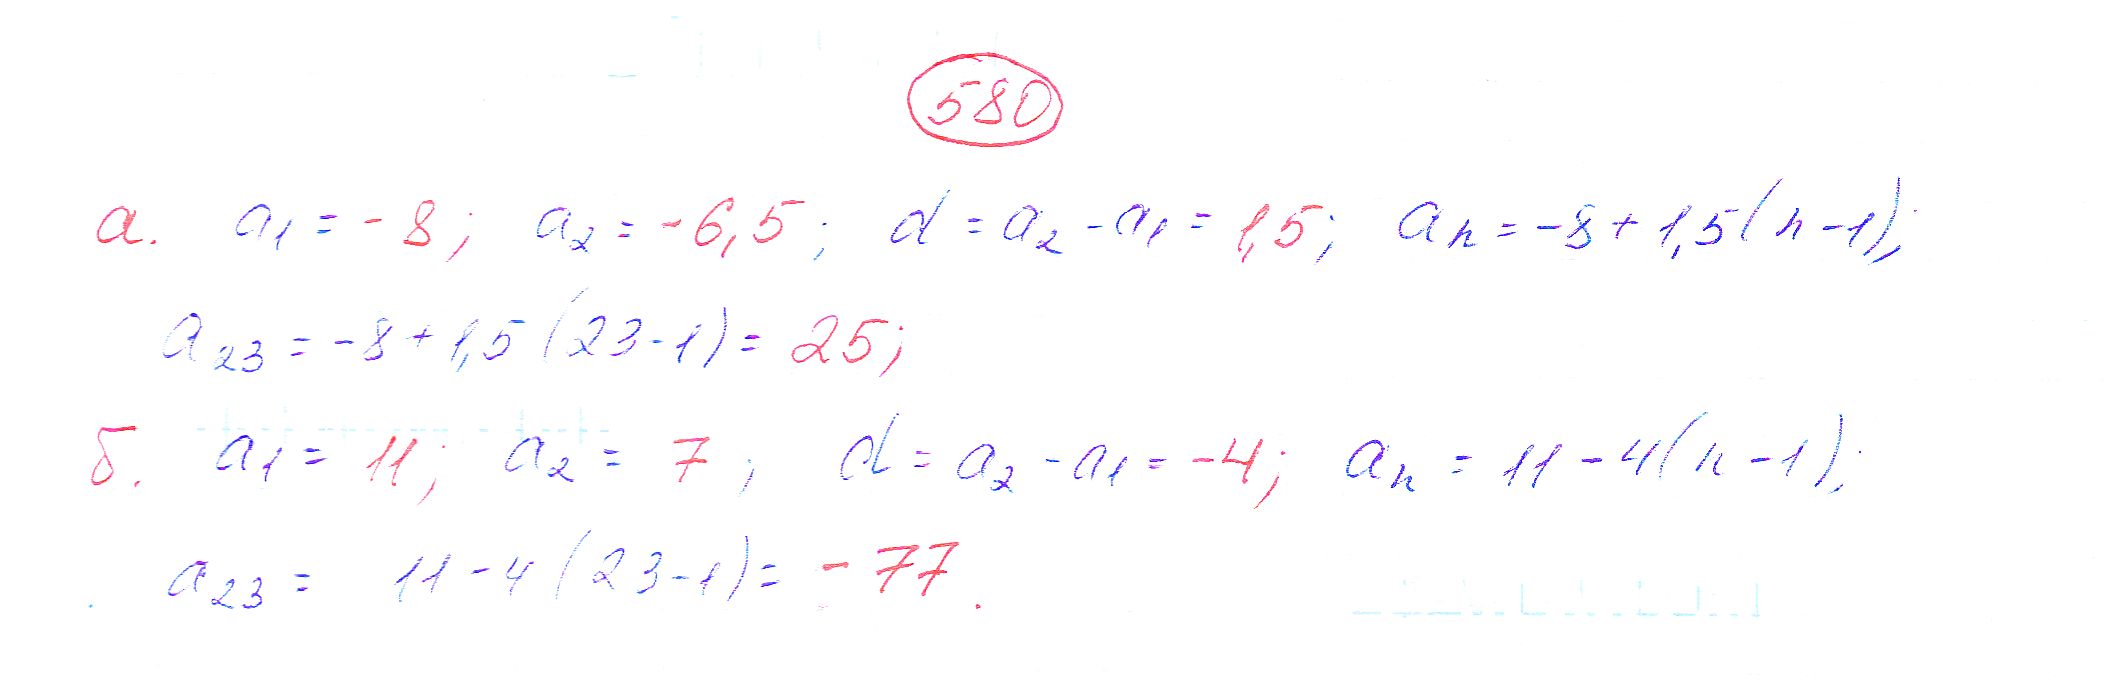 580
а. a₁ = -8; a₂ = -6,5; d = a₂ - a₁ = 1,5; aₙ = -8 + 1,5(n-1);
a₂₃ = -8 + 1,5(23-1) = 25;
б. a₁ = 11; a₂ = 7; d = a₂ - a₁ = -4; aₙ = 11 - 4(n-1);
a₂₃ = 11 - 4(23-1) = -77.